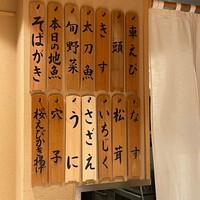 車えび
頭
きす
太刀魚
旬野菜
本日の地魚
そばがき
なす
松茸
いちじく
さざえ
うに
穴子
桜えびかき揚げ